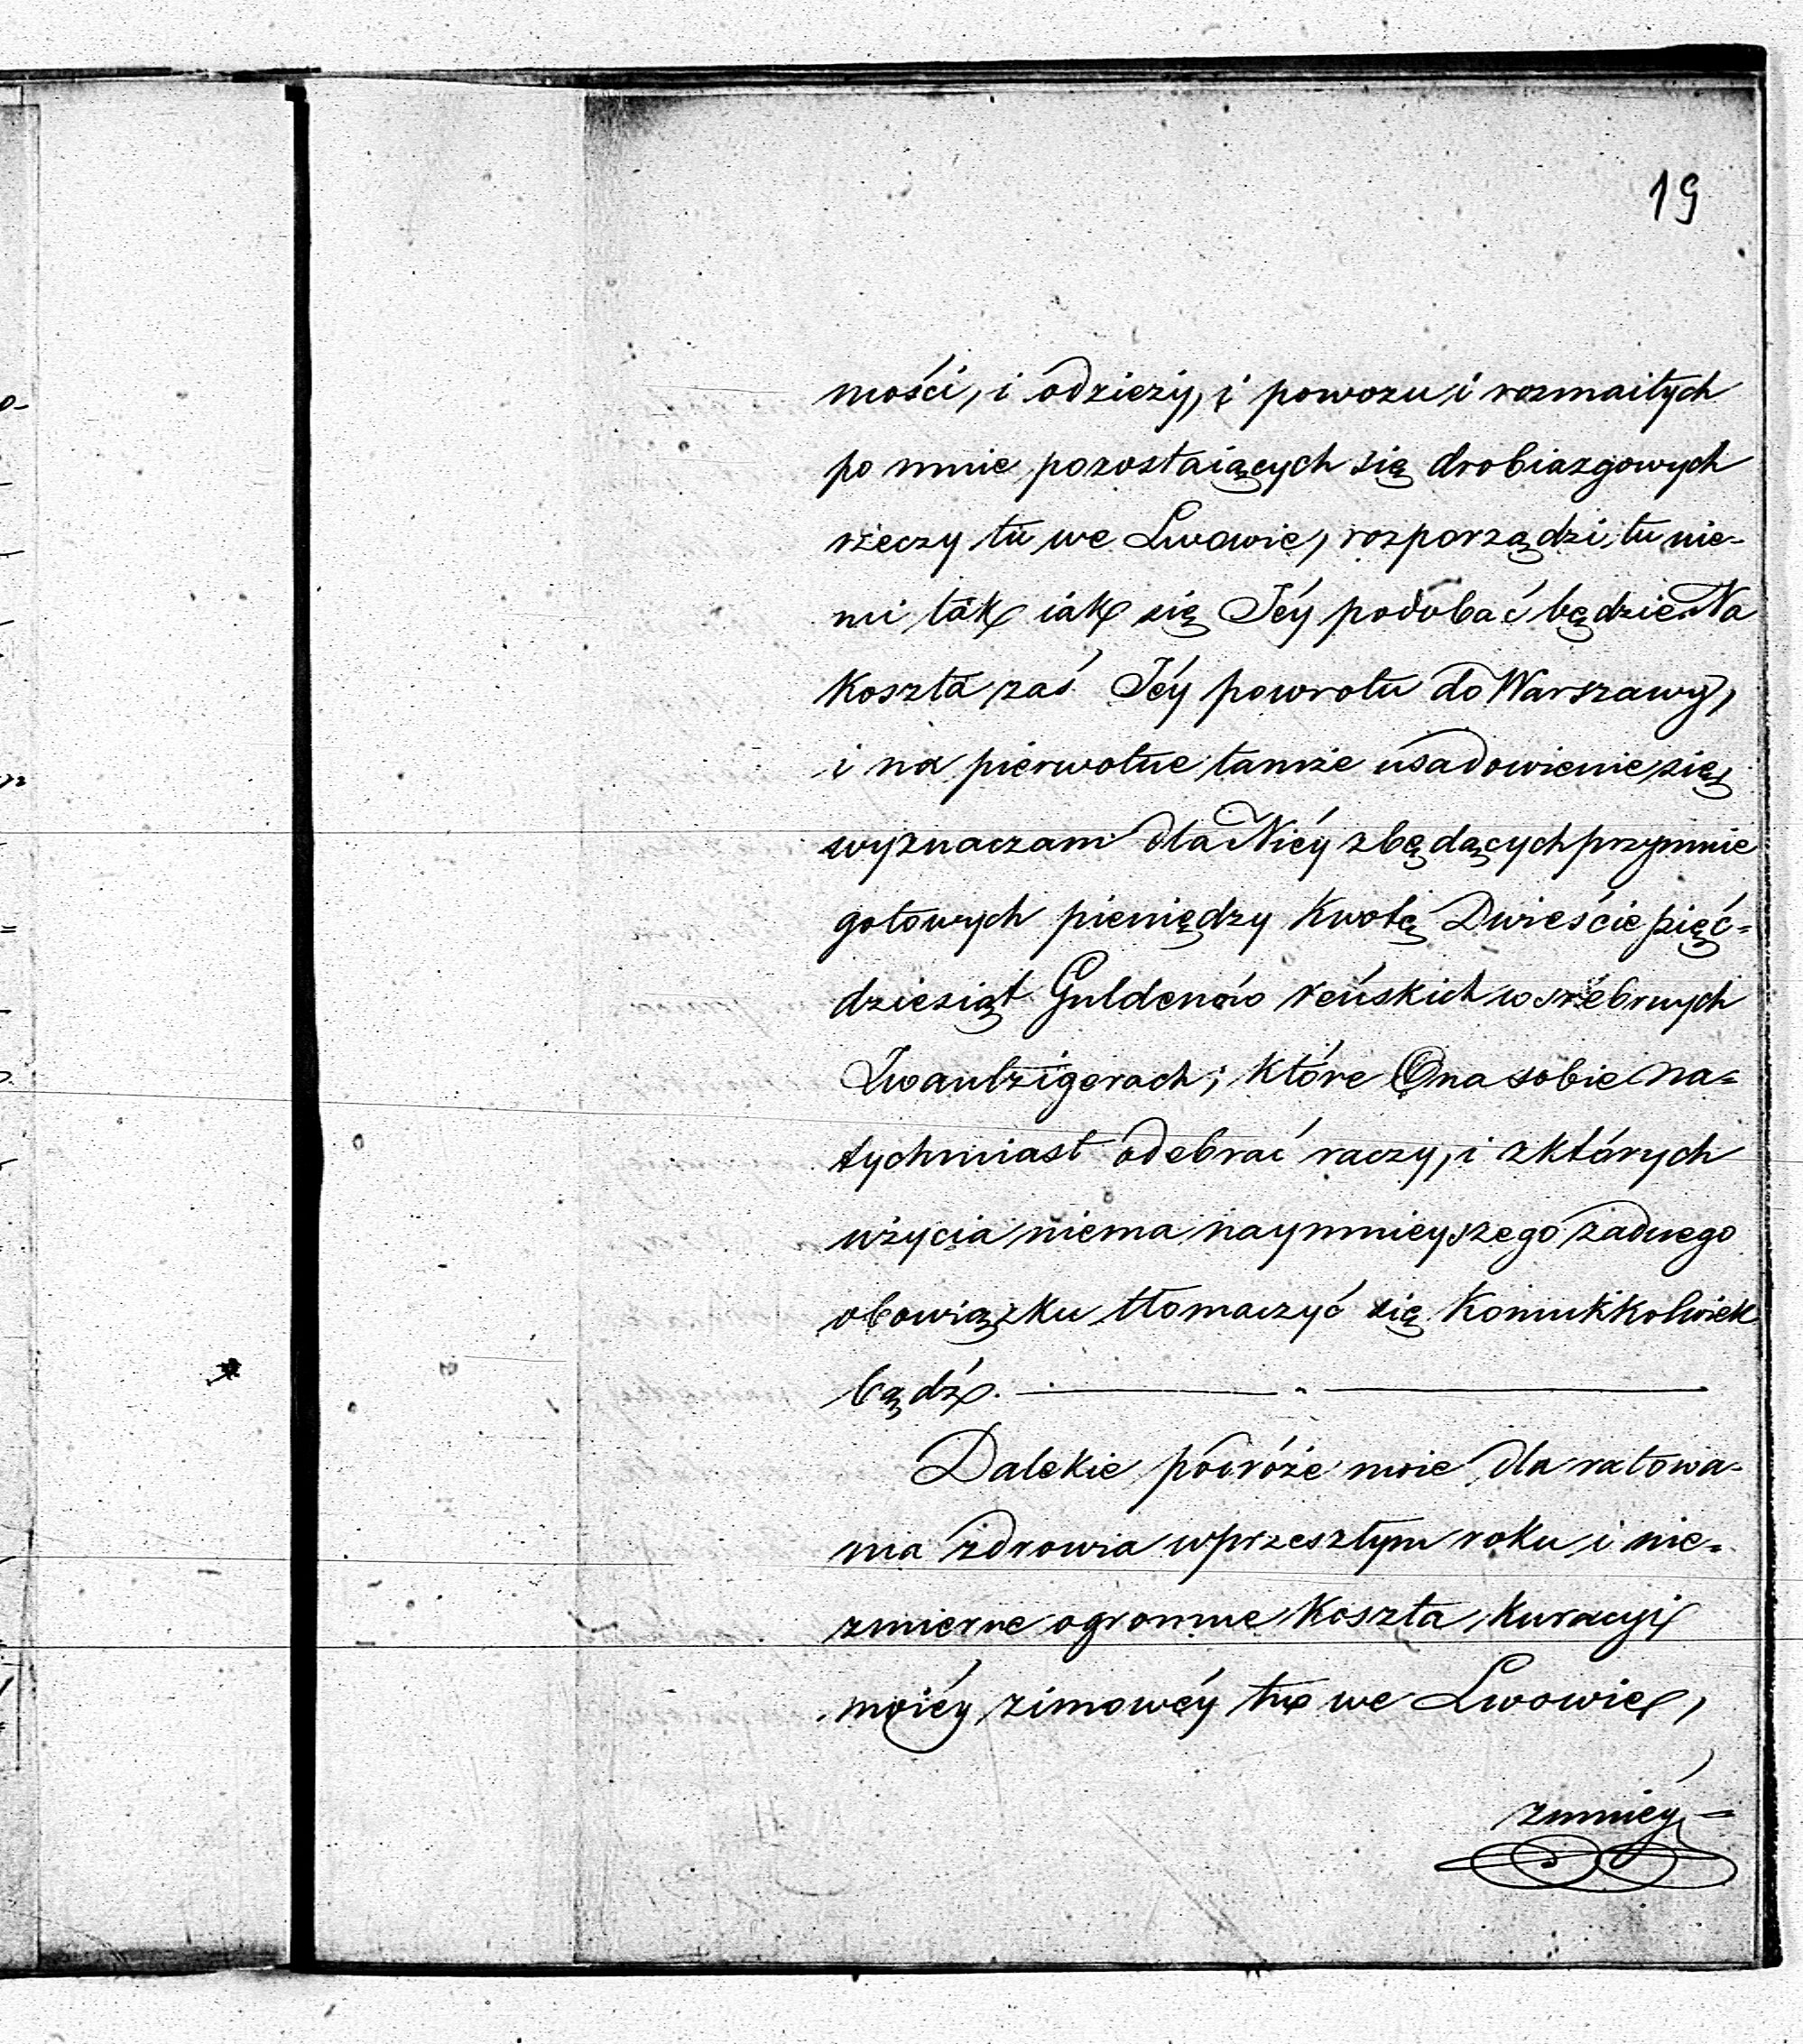 19
mości, i odzieży, i powozu i rozmaitych
po mnie pozostaiących się drobiazgowych
rzeczy tu we Lwowie, rozporządzi tu nie-
mi tak iak się Jéy podobać będzie. Na
koszta zaś Jéy powrotu do Warszawy,
i na pierwotne tamże usadowienie się,
wyznaczam dla Niéy z będących przymnie
gotowych pieniędzy kwotę Dwieście pięć=
dziesiąt Guldenów reńskich w srebrnych
Zwantzigerach; które Ona sobie na=
tychmiast odebrać raczy, i z których
użycia niema naymnieyszego żadnego
obowiązku tłomaczyć się komukkolwiek
bądź.
Dalekie podróże moie dla ratowa-
nia zdrowia w przeszłym roku i nie=
zmierne ogromne koszta kuracyi
moiéy zimowéy tu we Lwowie,
zmniéy=